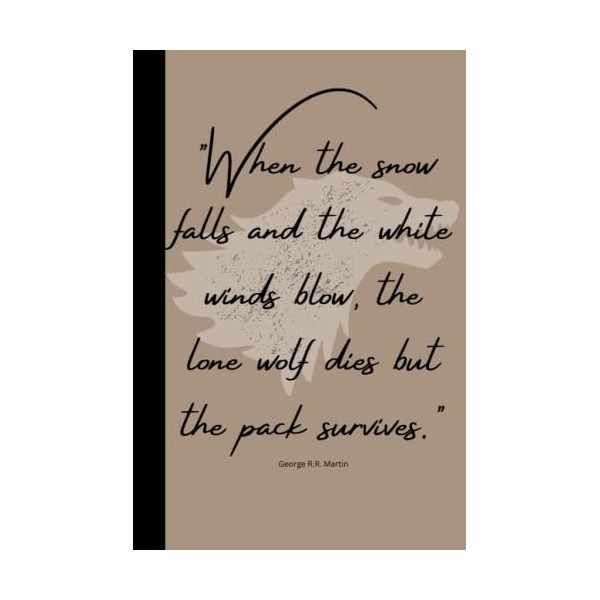 "When the snow
falls and the white
winds blow, the
lone wolf dies but
the pack survives."
George R.R. Martin